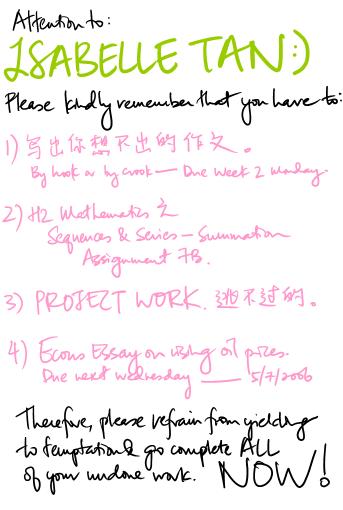 Attention to:
ISABELLE TAN:)
Please kindly remember that you have to:
1) 写出你想不出的作文。
By hook or by crook — Due Week 2 Monday.
2) H2 Mathematics 之
Sequences & Series - Summation
Assignment 7B.
3) PROJECT WORK. 逃不过的。
4) Econs Essay on rising oil prices.
Due next wednesday — 5/7/2006
Therefore, please refrain from yielding
to temptation & go complete ALL
of your undone work. NOW!